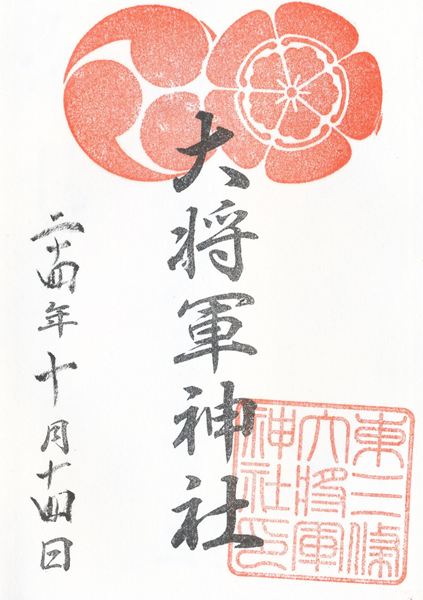 大将軍神社
二十四年十月十四日
東三條
大将軍
神社印